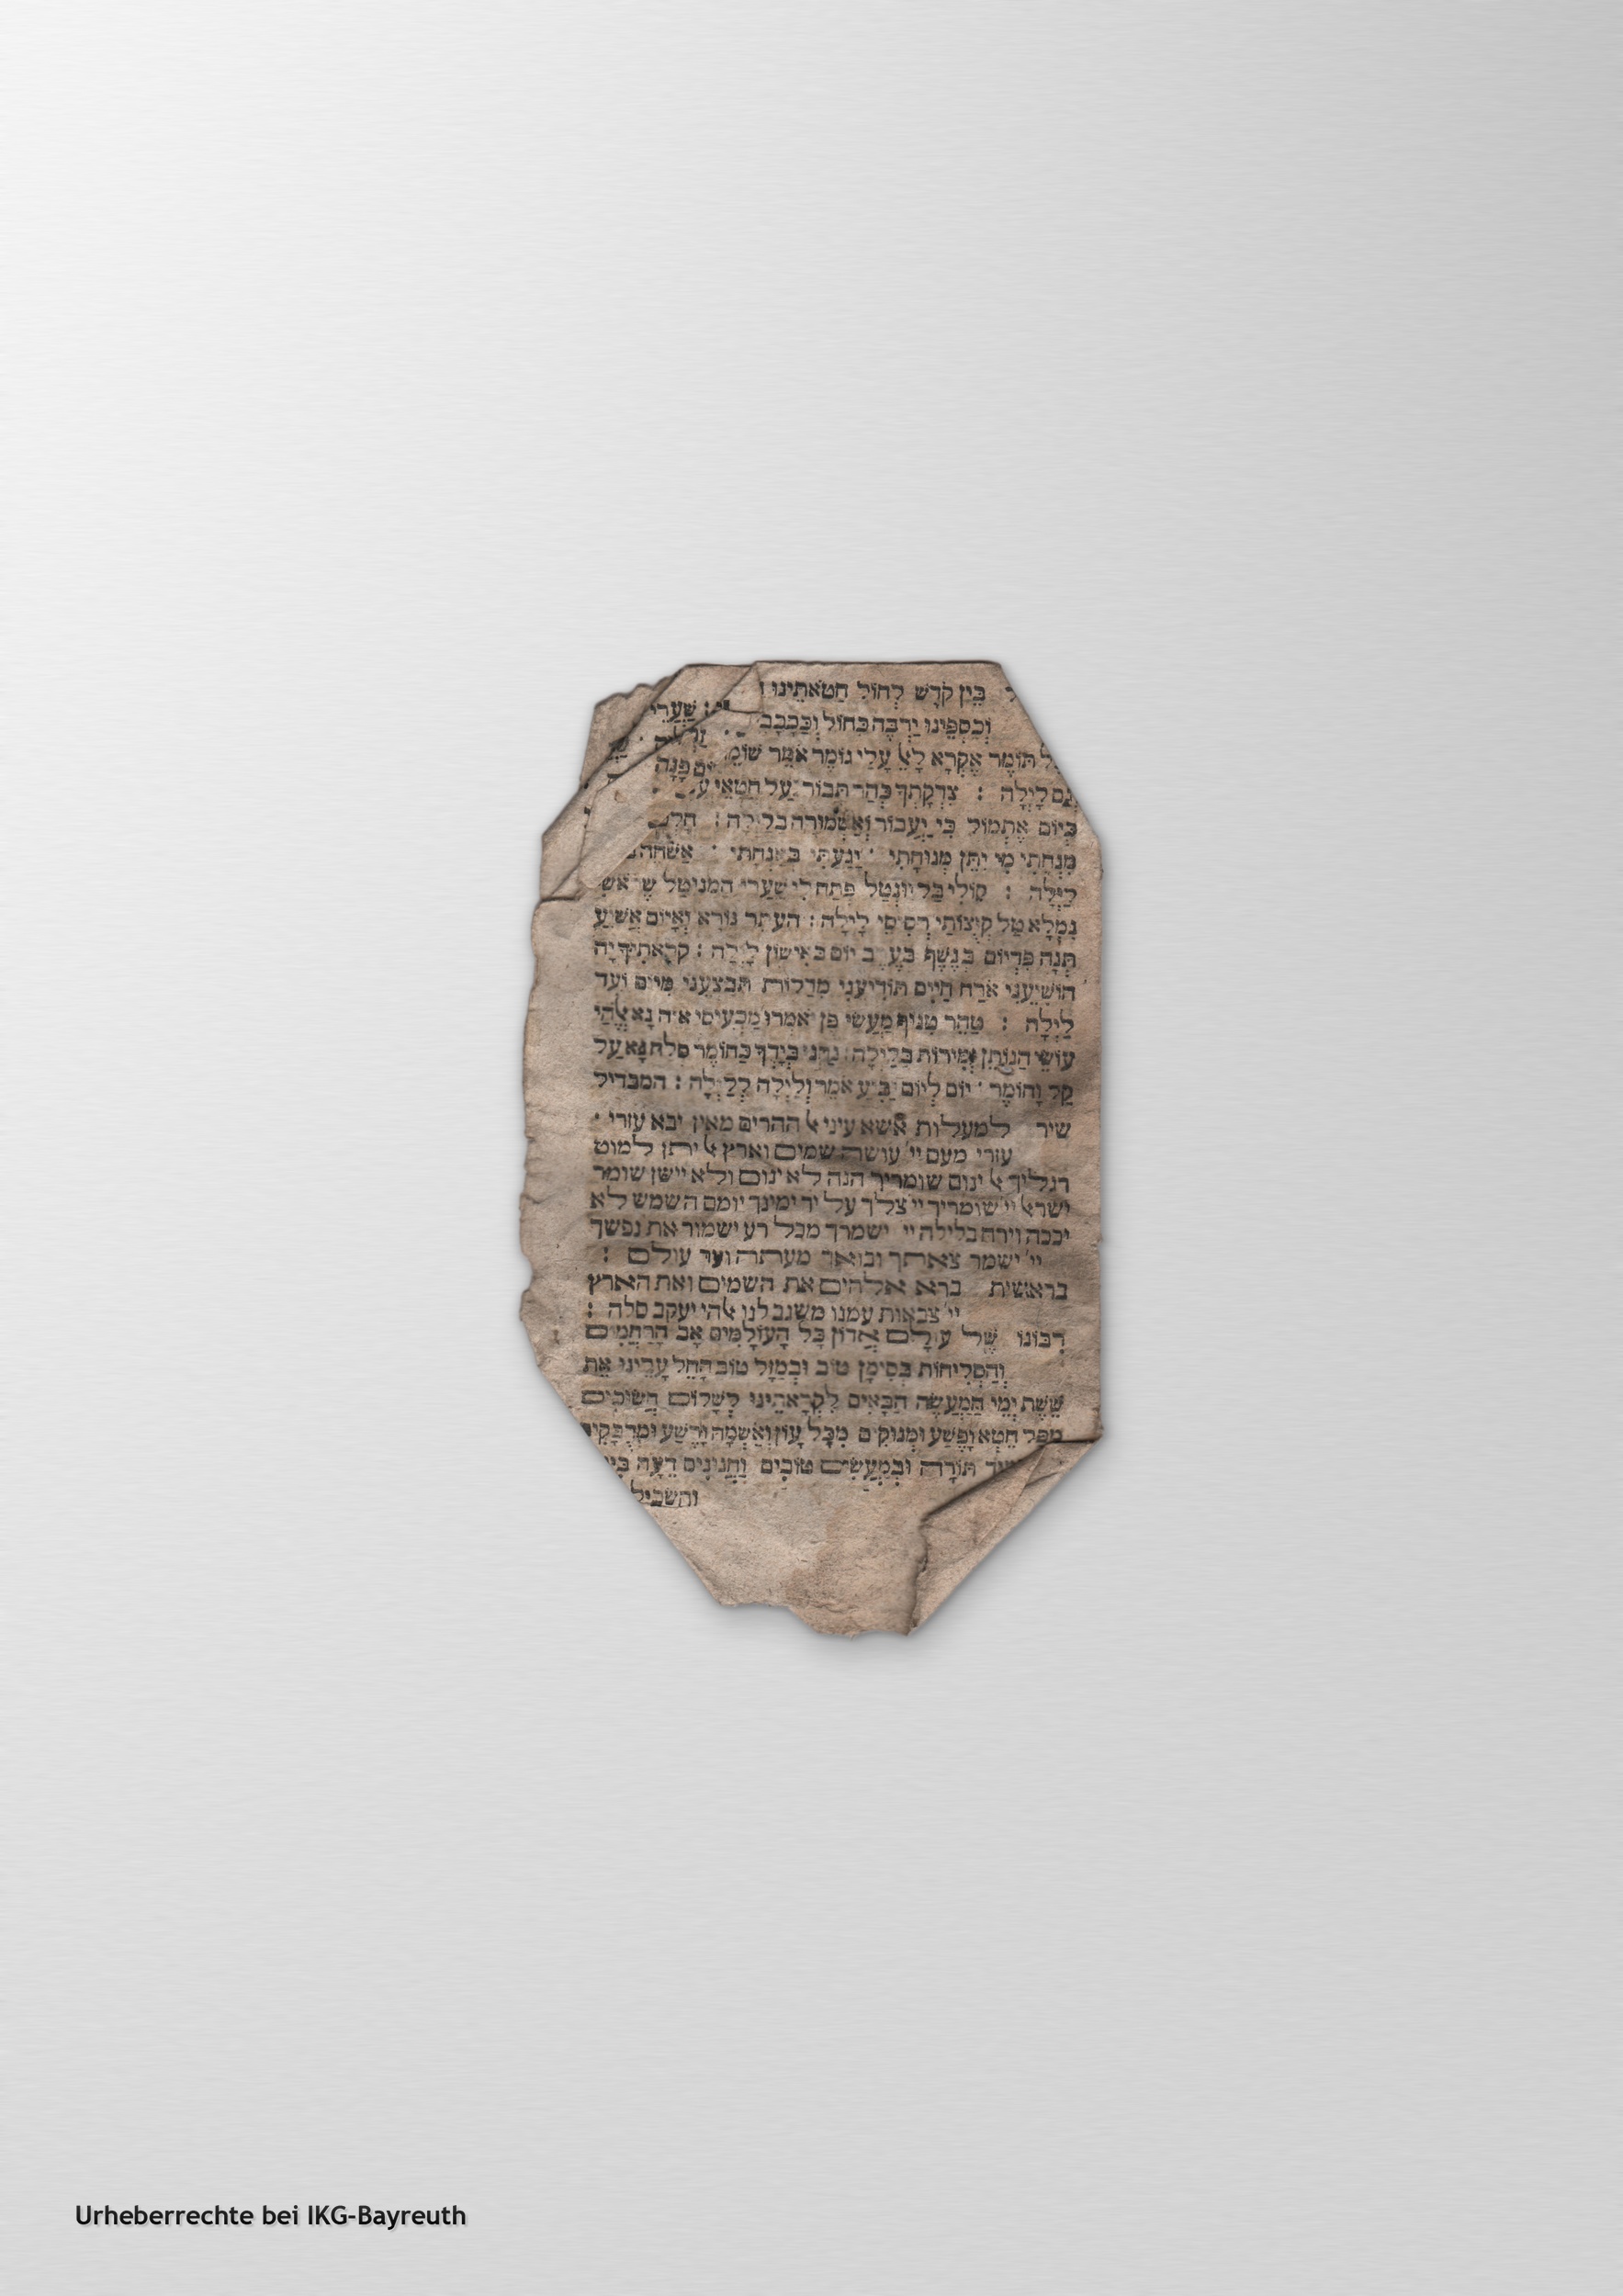 בֵּין קֹדֶשׁ לְחוֹל חַטֹּאתֵינוּ
וְכַסְפֵּינוּ יַרְבֶּה כַּחוֹל וְכַכּכָבִ
תּוֹמֶר אֶקְרָא לָאֵל עָלַי גּוֹמֵר אָמַר שׁוֹמֵ
וְגַם לָיְלָה : צִדְקָתְךָ כְּהַר תָּבוֹר עַל חֲטָאַי
כְּיוֹם אֶתְמוֹל כִּי יַעֲבוֹר וְאַשְׁמוּרָה בַלָּיְלָה :
מִנְחָתִי מִי יִתֵּן מְנוּחָתִי · יָגַעְתִּי בְּאַנְחָתִי · אַשְׂחֶה
לַיְלָה : קוֹלִי בַּל יוּנְטַל פְּתַח לִי שַׁעֲרֵי הַמְנוּטָל
נִמְלָא טַל קְוֻצּוֹתַי רְסִיסֵי לָיְלָה : הֵעָתֵר נוֹרָא וְאָיוֹם אֲשַׁוֵּעַ
תְּנָה פִּדְיוֹם בְּנֶשֶׁף בְּעֶרֶב יוֹם בְּאִישׁוֹן לָיְלָה : קְרָאתִיךָ יָהּ
הוֹשִׁיעֵנִי אֹרַח חַיִּים תּוֹדִיעֵנִי מִדַּלּוּת תְּבַצְּעֵנִי מִיּוֹם וְעַד
לַיְלָה : טַהֵר טִנּוּף מַעֲשַׂי פֶּן יֹאמְרוּ מַכְעִיסַי אַיֵּה נָא אֱלֹהַי
עוֹשָׂי הַנּוֹתֵן זְמִירוֹת בַּלָּיְלָה : נַחְנוּ בְּיָדְךָ כַּחוֹמֶר סְלַח נָא עַל
קַל וָחוֹמֶר · יוֹם לְיוֹם יַבִּיעַ אֹמֶר וְלַיְלָה לְלָיְלָה : המבדיל
שיר למעלות אשא עיני אל ההרים מאין יבא עזרי ·
עזרי מעם יי׳ עושה שמים וארץ אל יתן למוט
רגליך אל ינום שומריך הנה לא ינום ולא יישן שומר
ישראל יי׳ שומריך יי׳ צלך על יד ימינך יומם השמש לא
יככה וירח בלילה יי׳ ישמרך מכל רע ישמור את נפשך
יי׳ ישמר צאתך ובואך מעתה ועד עולם :
בראשית ברא אלהים את השמים ואת הארץ
יי׳ צבאות עמנו משגב לנו אלהי יעקב סלה :
רִבּוֹנוֹ שֶׁל עוֹלָם אֲדוֹן כָּל הָעוֹלָמִים אָב הָרַחֲמִים
וְהַסְּלִיחוֹת בְּסִימָן טוֹב וּבְמַזָּל טוֹב הָחֵל עָלֵינוּ אֶת
שֵׁשֶׁת יְמֵי הַמַּעֲשֶׂה הַבָּאִים לִקְרָאתֵינוּ לְשָׁלוֹם חֲשׂוּכִים
מִכָּל חֵטְא וָפֶשַׁע וּמְנוּקִּים מִכָּל עָוֹן וְאַשְׁמָה וָרֶשַׁע וּמְדֻבָּקִים
תּוֹרָה וּבְמַעֲשִׂים טוֹבִים וַחֲנִינִים דֵּעָה
והשכיל
Urheberrechte bei IKG-Bayreuth